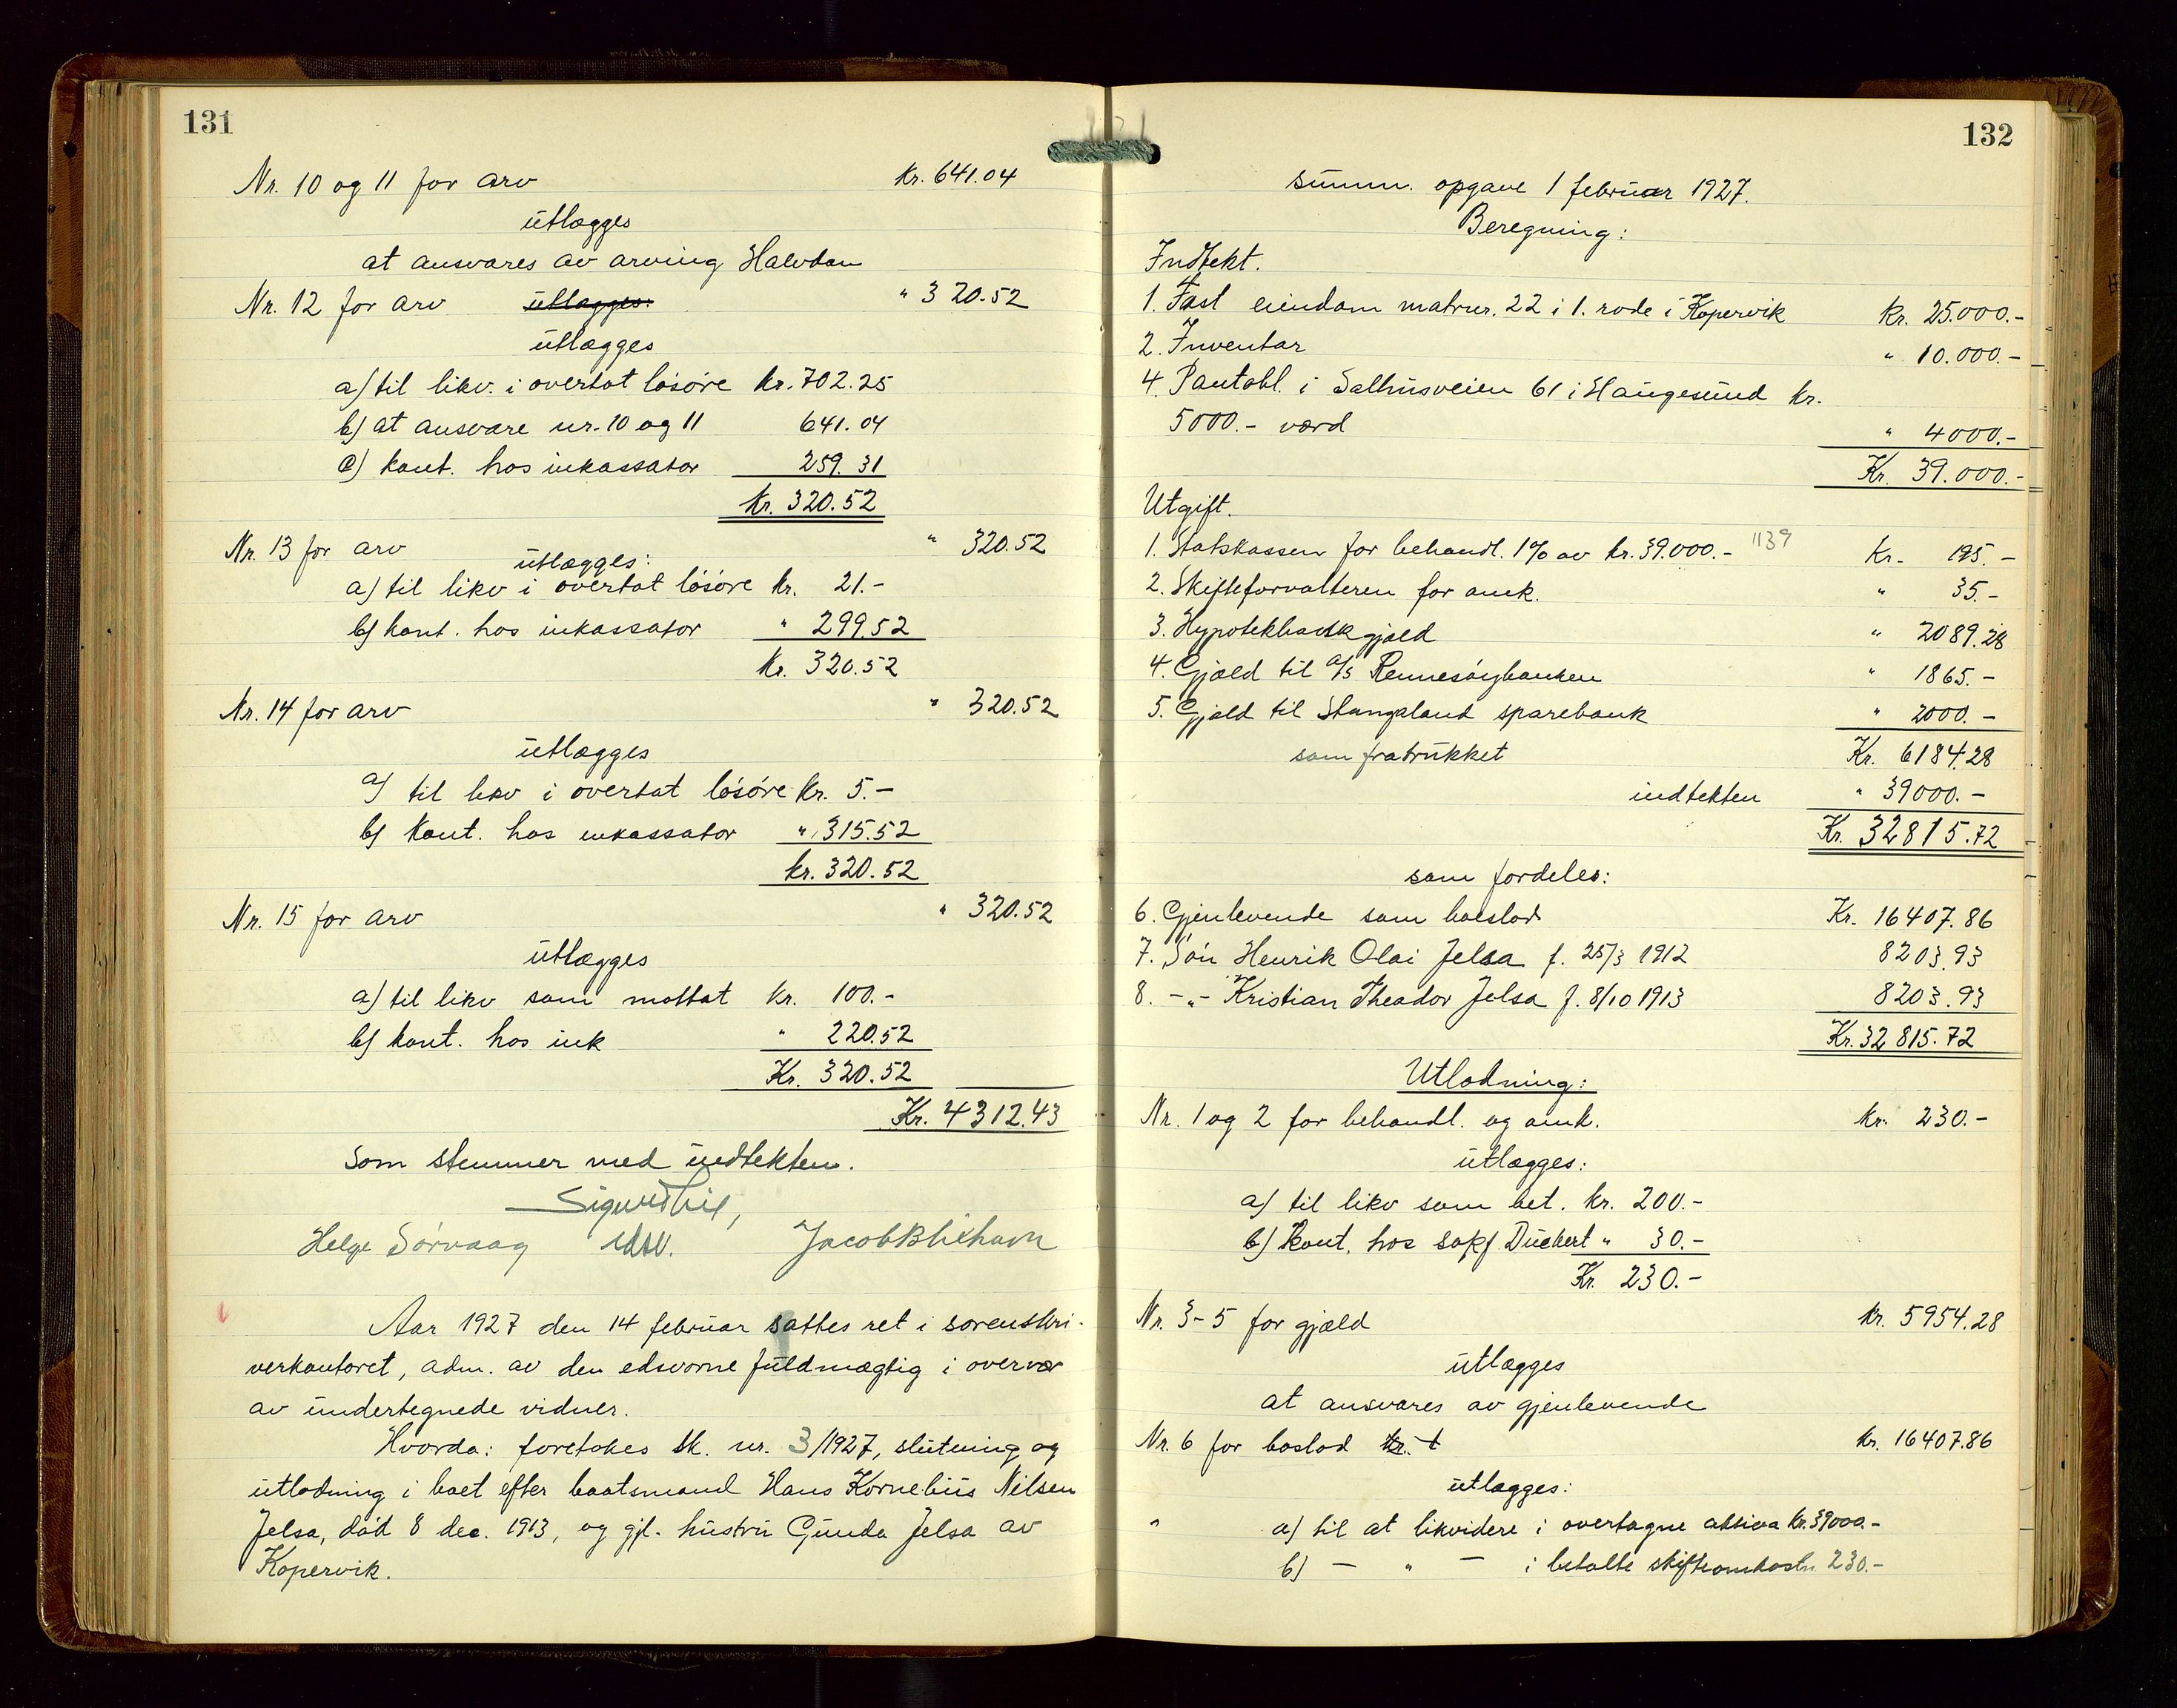 131
Nr. 10 og 11 for arv Kr. 641.04
utlægges
at ansvares av arving Halvdan
Nr. 12 for arv utlægges: " 320.52
utlægges
a) til likv. i overtat løsøre kr. 702.25
b) at ansvare nr. 10 og 11 641.04
c) kont. hos inkassator 259.31
Kr. 320.52
Nr. 13 for arv " 320.52
utlægges:
a) til likv i overtat løsøre kr. 21.-
b) kont. hos inkassator " 299.52
Kr. 320.52
Nr. 14 for arv " 320.52
utlægges
a) til likv i overtat løsøre kr. 5.-
b) kont. hos inkassator " 315.52
kr. 320.52
Nr. 15 for arv " 320.52
utlægges
a) til likv som mottat kr. 100.-
b) kont. hos ink " 220.52
Kr. 320.52
Kr. 4312.43
Som stemmer med indtekten.
Helge Sørvaag Jacob Blikhavn
Aar 1927 den 14 februar sattes ret i sorenskri-
verkontoret, adm. av den edsvorne fuldmægtig i overvær
av undertegnede vidner.
Hvorda: foretokes sk. nr. 3/1927, slutning og
utlodning i boet efter baatsmand Hans Kornelius Nilsen
Jelsa, død 8 dec. 1913, og gjl. hustru Gunda Jelsa av
Kopervik.
132
summ. opgave 1 februar 1927.
Beregning:
Indtekt.
1. Fast eiendom matrnr. 22 i 1. rode i Kopervik Kr. 25.000.-
2. Inventar " 10.000.-
4. Pantobl. i Salhusveien 61 i Haugesund kr.
5000.- værd " 4000.-
Kr. 39.000.-
Utgift.
1. Statskassen for behandl. 1% av kr. 39.000.- 1139 Kr. 195.-
2. Skifteforvalteren for omk. " 35.-
3. Hypotekbankgjæld " 2089.28
4. Gjæld til A/S Rennesøybanken " 1865.-
5. Gjæld til Stangaland sparebank " 2000.-
som fratrukket Kr. 6184.28
indtekten " 39000.-
Kr. 32815.72
som fordeles:
6. Gjenlevende som boeslod Kr. 16407.86
7. Søn Henrik Olai Jelsa f. 25/3 1912 8203.93
8. -"- Kristian Theodor Jelsa f. 8/10 1913 8203.93
Kr. 32815.72
Utlodning:
Nr. 1 og 2 for behandl. og omk. kr. 230.-
utlægges:
a) til likv som bet. kr. 200.-
b) Kont. hos sakf Duckert " 30.-
Kr. 230.-
Nr. 3-5 for gjæld kr. 5954.28
utlægges
at ansvares av gjenlevende
Nr. 6 for boslod kr. 16407.86
utlægges:
" a) til at likvidere i overtagne aktiva kr. 39000.-
b) - " - i betalte skifteomkostn 230.-